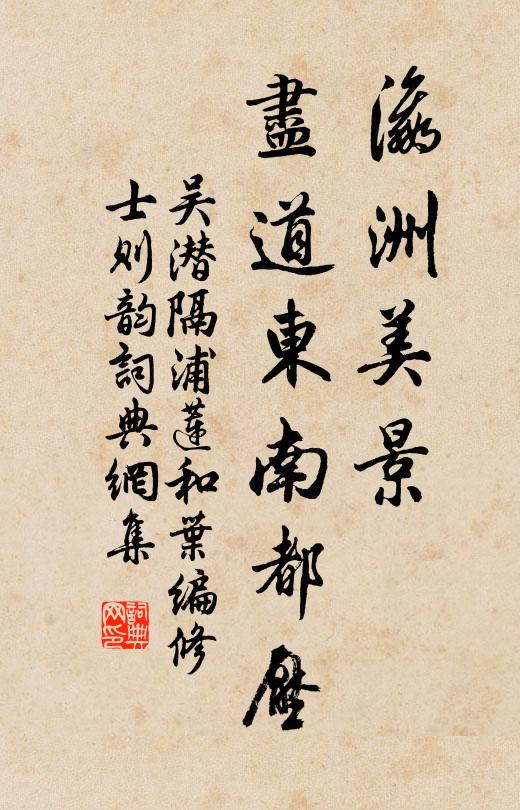 瀛洲美景
盡道東南都壓
吴潜隔浦蓮和葉編修
士则韵詞典網集
詞典網印